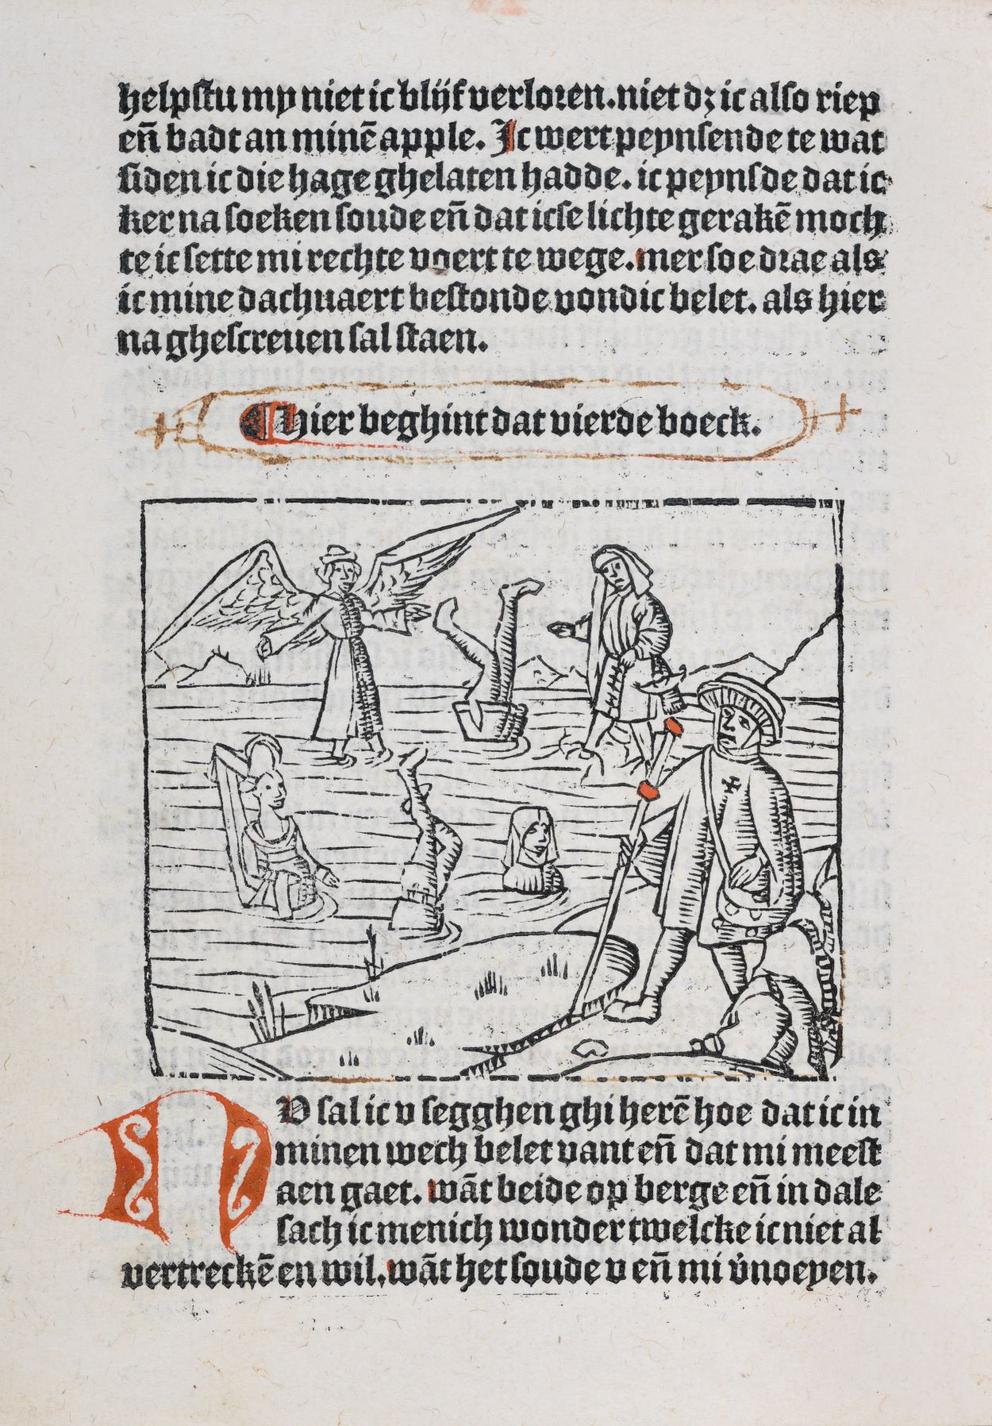 helpstu my niet ic blijf verloren. niet dz ic also riep
eñ badt an minē apple. Jc wert peynsende te wat
siden ic die hage ghelaten hadde. ic peynsde dat ic
ker na soeken soude eñ dat icse lichte gerakē moch
te ic sette mi rechte voert te wege. mer soe drae als
ic mine dachuaert bestonde vondic belet. als hier
na ghescreuen sal staen.
¶ Hier beghint dat vierde boeck.
NV sal ic v segghen ghi herē hoe dat ic in
minen wech belet vant eñ dat mi meest
aen gaet. wāt beide op berge eñ in dale
sach ic menich wonder twelcke ic niet al
vertreckē en wil. wāt het soude v eñ mi v̄noeyen.